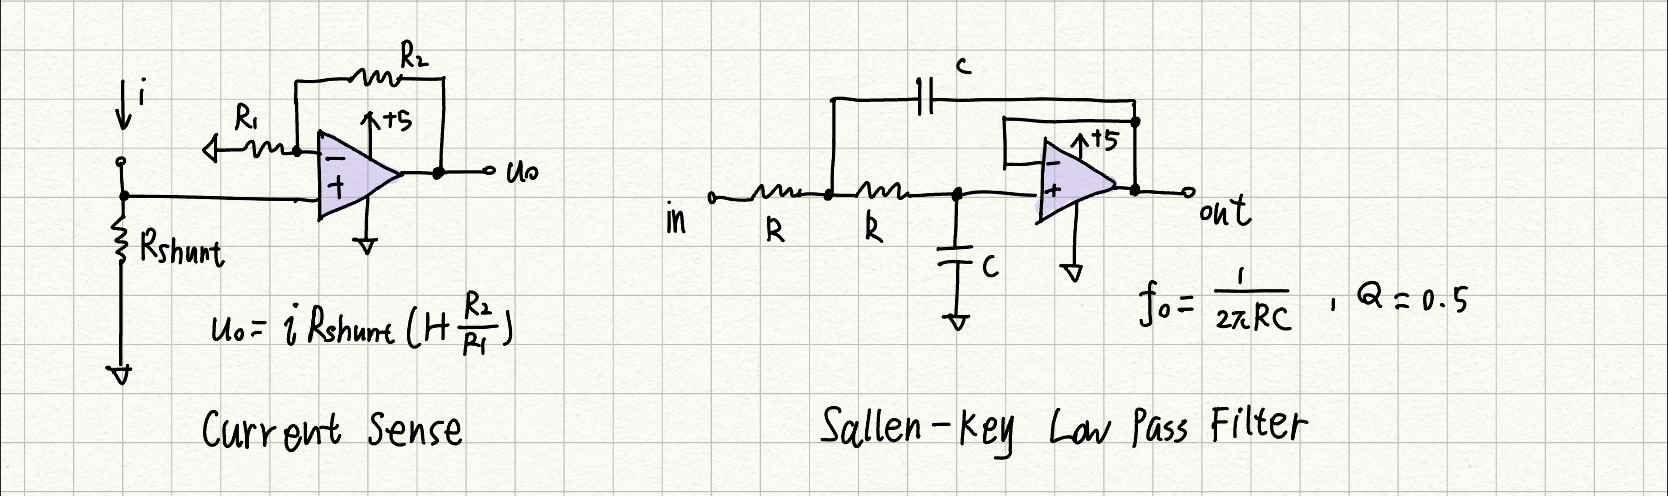 i
R₁
R₂
+5
−
+
u₀
Rshunt
u₀ = i Rshunt (1+ R₂/R₁)
Current Sense
C
+5
−
+
in
R
R
C
out
f₀ = 1/2πRC , Q = 0.5
Sallen-Key Low Pass Filter